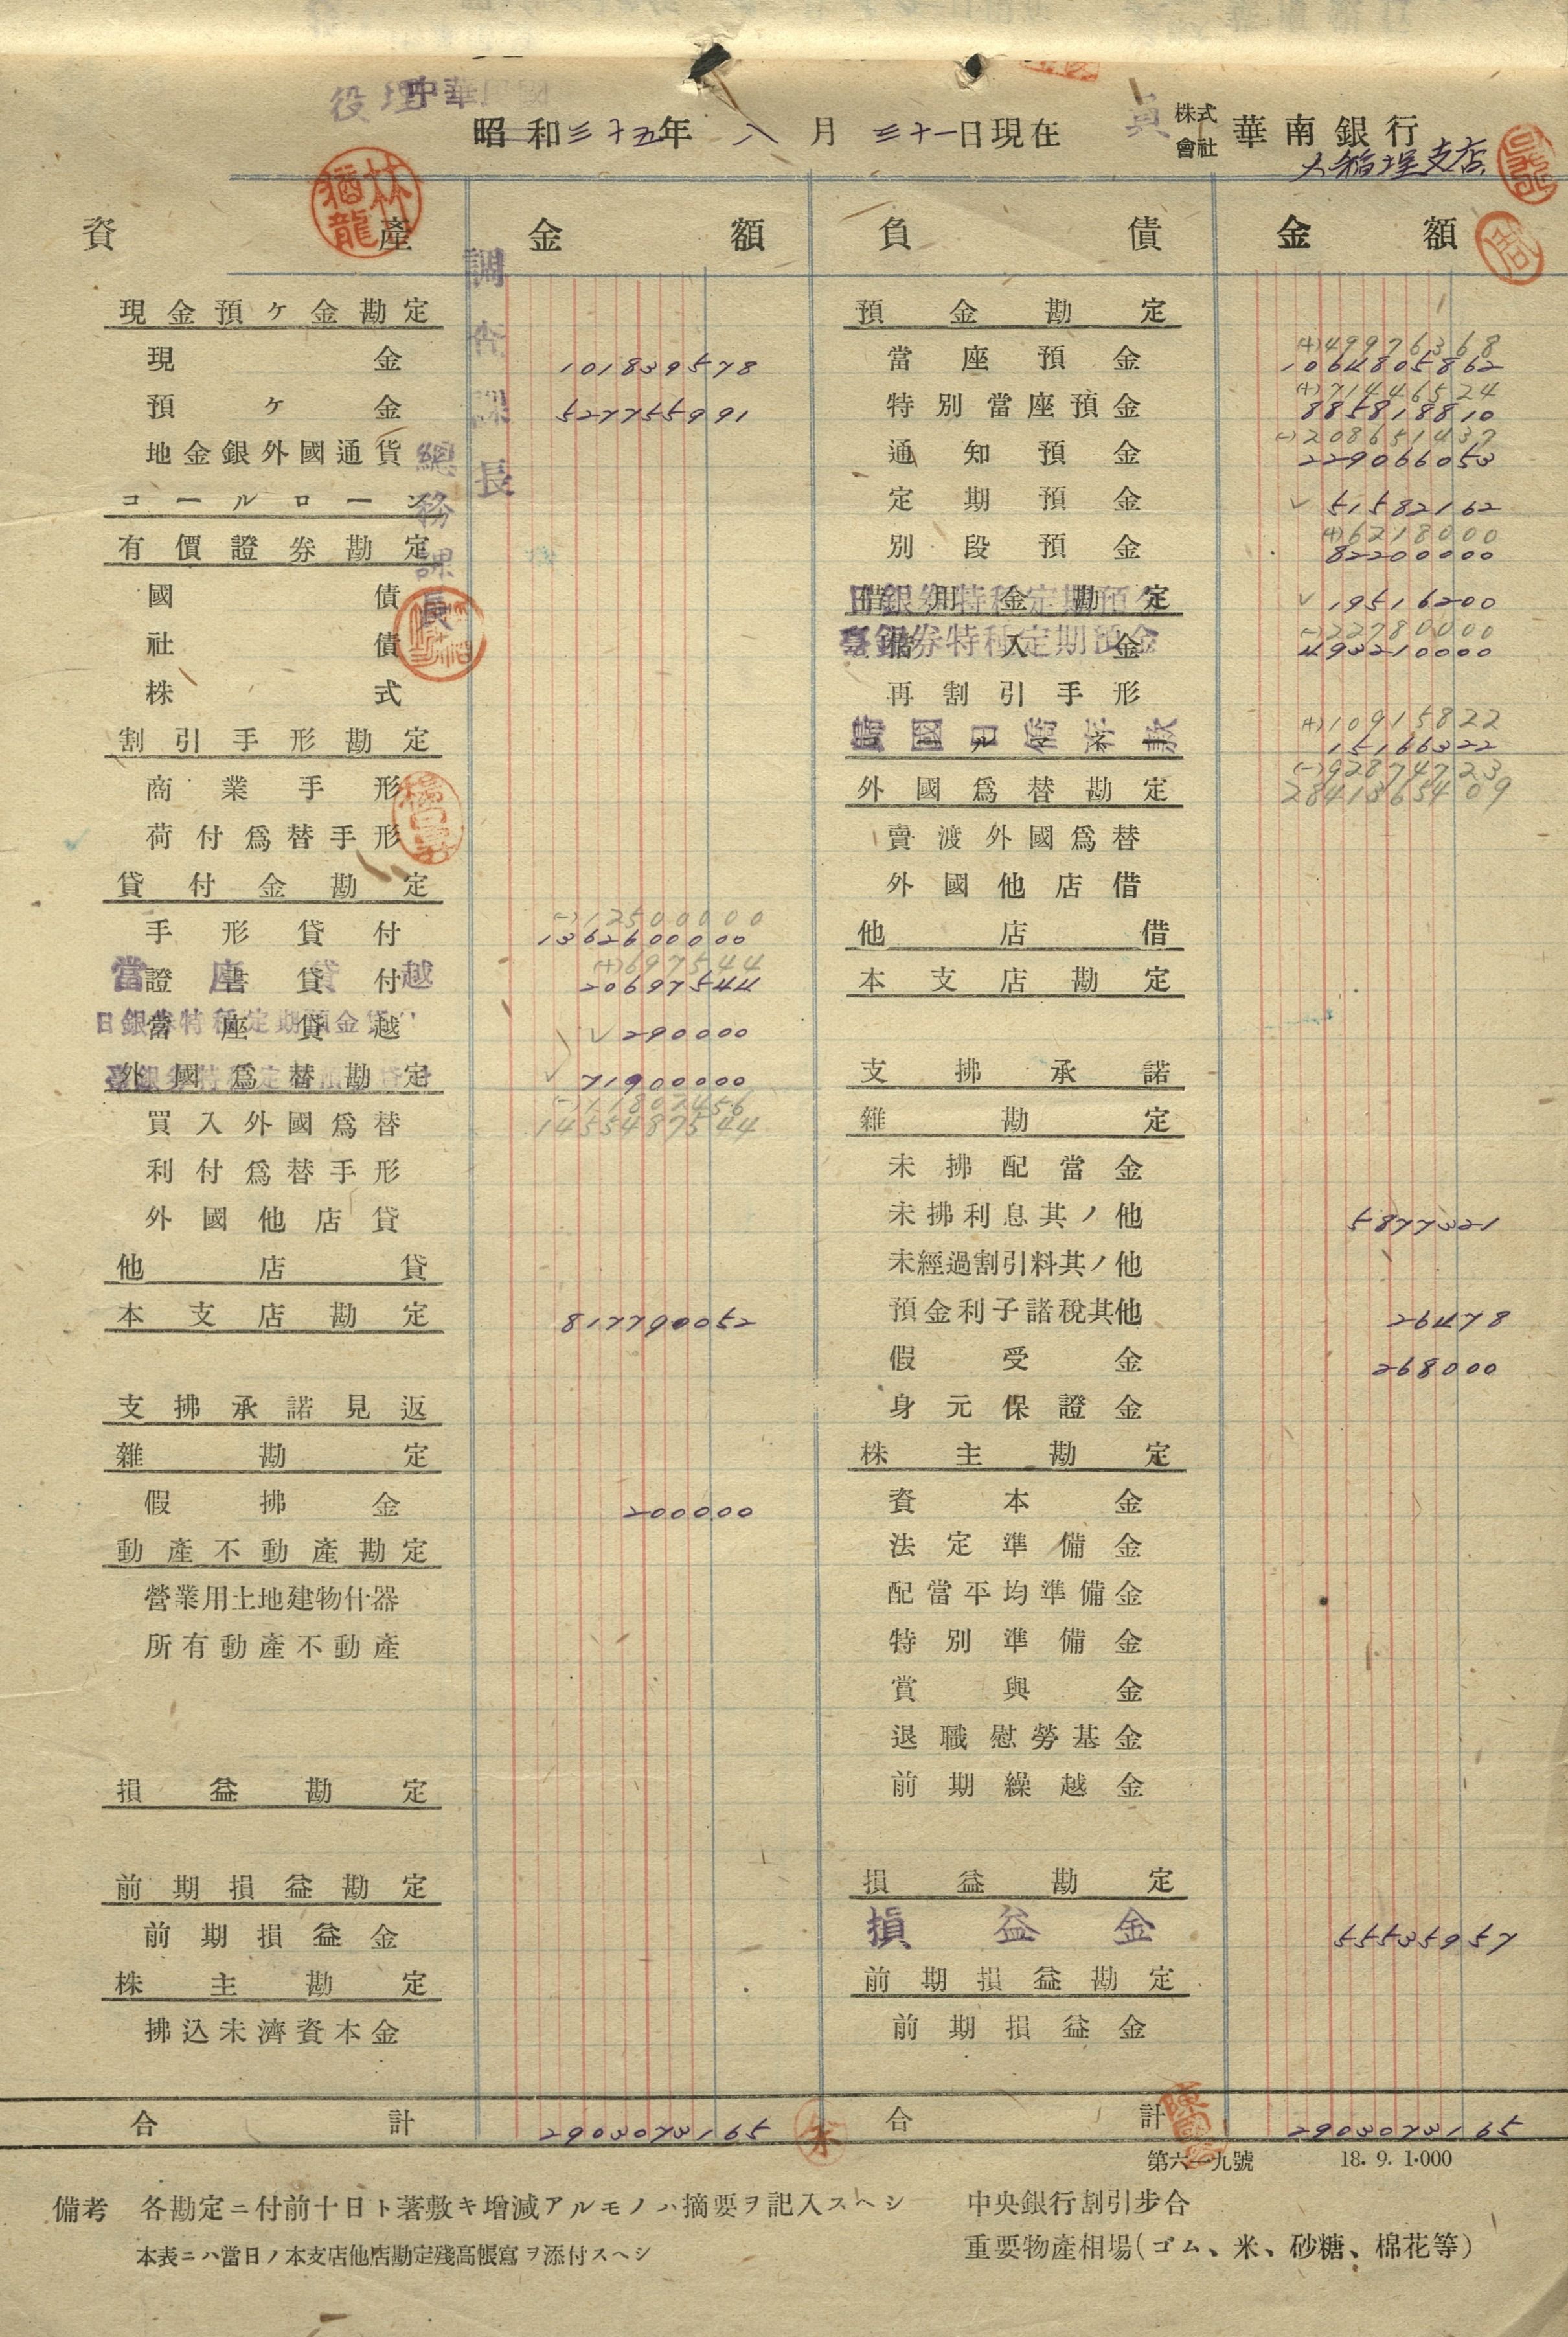 中華民國
役
昭和三十五年 八月 三十一日現在
株式會社 華南銀行
大稻埕支店
林猶龍
資產 金額 負債 金額
調查課長
總務課長
現金預ケ金勘定
現金 101839578
預ケ金 527755991
地金銀外國通貨
コールローン
有價證券勘定
國債
社債
株式
割引手形勘定
商業手形
荷付爲替手形
貸付金勘定
(-)12500000
手形貸付 1362600000
(+)697544
證書貸付 20697544
當座貸越
當座貸越 290000
日銀券特種定期預金
外國爲替勘定 71900000
臺銀券特種定期預金
(-)11807456
買入外國爲替 1455487544
利付爲替手形
外國他店貸
他店貸
本支店勘定 817790052
支拂承諾見返
雜勘定
假拂金 200000
動產不動產勘定
營業用土地建物什器
所有動產不動產
損益勘定
前期損益勘定
前期損益金
株主勘定
拂込未濟資本金
合計 2903073165
預金勘定
(+)49976368
當座預金 1064805862
(+)71446524
特別當座預金 885818810
(-)208651437
通知預金 229066053
定期預金 51582162
(+)6218000
別段預金 82200000
借用金勘定 19516200
日銀券特種定期預金
(-)22780000
借入金 493210000
臺銀券特種定期預金
再割引手形
(+)10915822
15166322
外國爲替勘定
(-)92874723
2841365409
賣渡外國爲替
外國他店借
他店借
本支店勘定
支拂承諾
雜勘定
未拂配當金
未拂利息其ノ他 5877321
未經過割引料其ノ他
預金利子諸稅其他 26478
假受金 268000
身元保證金
株主勘定
資本金
法定準備金
配當平均準備金
特別準備金
賞與金
退職慰勞基金
前期繰越金
損益勘定
損益金 55535957
前期損益勘定
前期損益金
合計 2903073165
第六一九號 18.9.1.000
備考 各勘定ニ付前十日ト著敷キ增減アルモノハ摘要ヲ記入スヘシ
本表ニハ當日ノ本支店他店勘定殘高帳寫ヲ添付スヘシ
中央銀行割引步合
重要物產相場(ゴム、米、砂糖、棉花等)